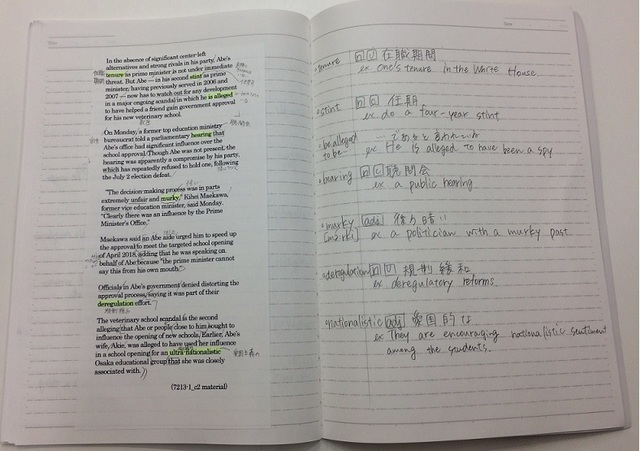 In the absence of significant center-left
alternatives and strong rivals in his party, Abe's
tenure as prime minister is not under immediate
threat. But Abe — in his second stint as prime
minister, having previously served in 2006 and
2007 — now has to watch out for any development
in a major ongoing scandal in which he is alleged
to have helped a friend gain government approval
for his new veterinary school.
On Monday, a former top education ministry
bureaucrat told a parliamentary hearing that
Abe's office had significant influence over the
school approval. Though Abe was not present, the
hearing was apparently a compromise by his party,
which has repeatedly refused to hold one, following
the July 2 election defeat.
"The decision-making process was in parts
extremely unfair and murky," Kihei Maekawa,
former vice education minister, said Monday.
"Clearly there was an influence by the Prime
Minister's Office."
Maekawa said an Abe aide urged him to speed up
the approval to meet the targeted school opening
of April 2018, adding that he was speaking on
behalf of Abe because "the prime minister cannot
say this from his own mouth."
Officials in Abe's government denied distorting the
approval process, saying it was part of their
deregulation effort.
The veterinary school scandal is the second
alleging that Abe or people close to him sought to
influence the opening of new schools. Earlier, Abe's
wife, Akie, was alleged to have used her influence
in a school opening for an ultra-nationalistic
Osaka educational group that she was closely
associated with.
(7213-1_c2 material)
tenure 在職期間
ex one's tenure in the White House.
stint 任期
ex do a four-year stint
be alleged to be~
ex He is alleged to have been a spy
hearing 聴聞会
ex a public hearing
murky
ex a politician with a murky past
deregulation 規制緩和
ex deregulatory reforms.
nationalistic 愛国的な
ex They are encouraging nationalistic sentiment
among the students.